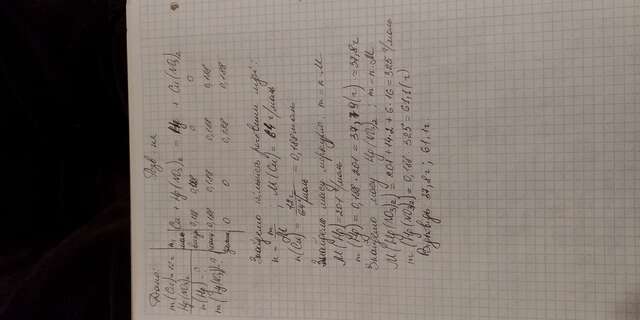 Дано:
m(Cu)=12г
Hg(NO₃)₂
m(Hg)-?
m(Hg(NO₃)₂)-?
Cu + Hg(NO₃)₂ = Hg + Cu(NO₃)₂
0,188 0,188 0 0
0,188 0,188 0,188 0,188
0 0 0,188 0,188
Знайдемо кількість речовини міді:
n = m/M ; M(Cu) = 64 г/моль
n(Cu) = 12г/64г/моль = 0,188 моль
Знайдемо масу меркурію: m = n·M
M(Hg) = 201 г/моль
m(Hg) = 0,188·201 = 37,79(г) ≈ 37,8г
Знайдемо масу Hg(NO₃)₂ ; m = n·M
M(Hg(NO₃)₂) = 201+14·2+6·16 = 325 г/моль
m(Hg(NO₃)₂) = 0,188·325 = 61,1(г)
37,8г ; 61,1г